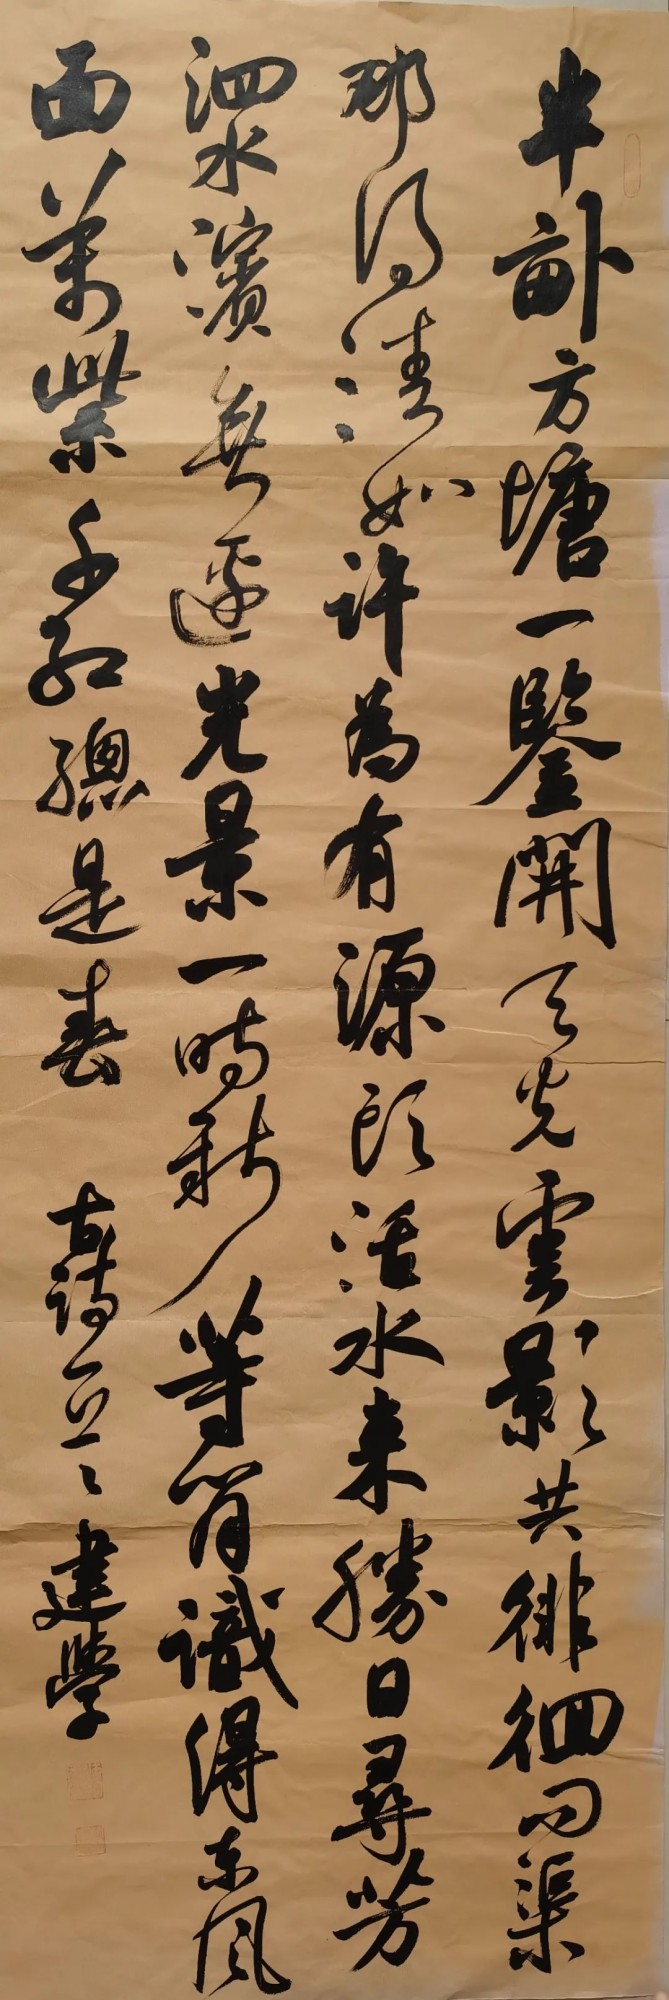 半畝方塘一鑒開天光雲影共徘徊問渠
那得清如許為有源頭活水来勝日尋芳
泗水濱無邊光景一時新等閒識得东风
面萬紫千紅總是春
古詩二首建學